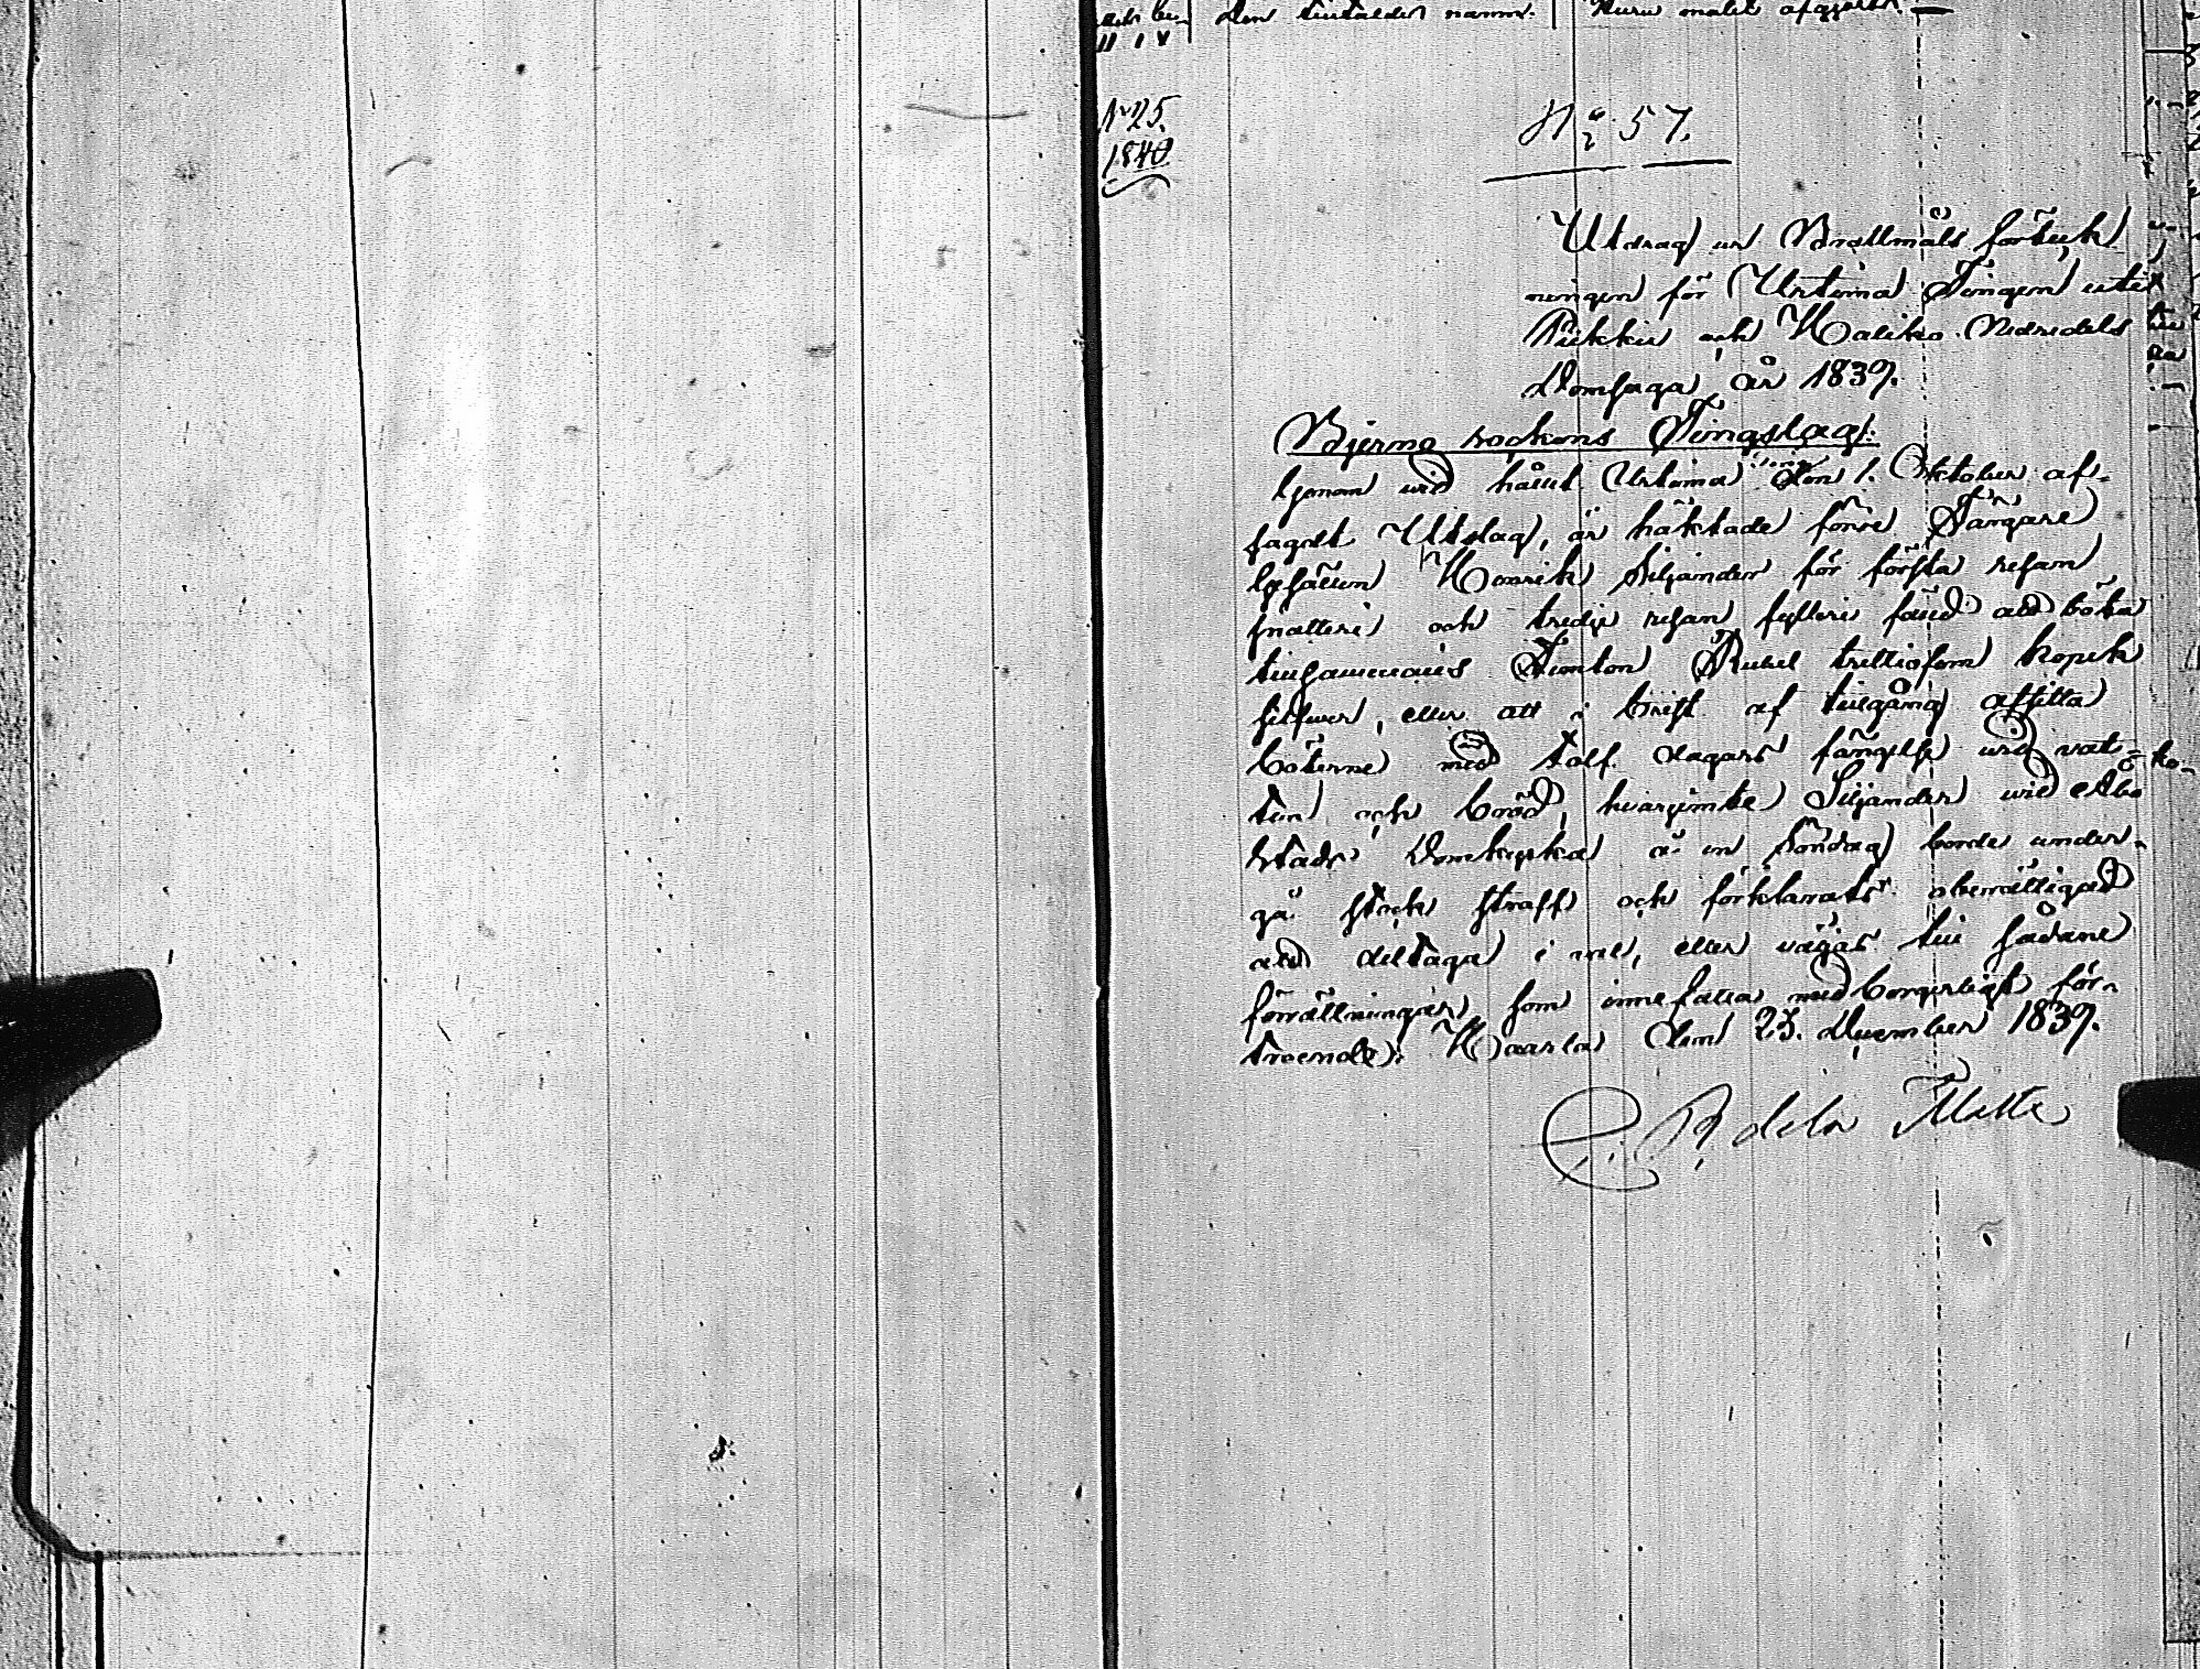 Den tilltalades namn. Huru målet afgjorts.
N 25.
1840
No 57.
Utdrag ur Brottmåls förteck
ningen för Urtima Tingen uti
Pickkie och Haliko Nedredels
Domsaga år 1839.
Bjerno sockens Tingslag.
Genom wid hållit Urtima Ting den 1. Oktober af-
sagdt Utslag, är häktade förre Fångare
Gesällen Henrik Siljander för första resan
snatteri och tredje resan fylleri fäld att böta
tillsammans Femton Rubel trettiofem kopek
silfwer, eller att i brist af tillgång afsitta
böterne med tolf dagars fängelse wid vat-
ten och bröd, hvarjemte Siljander wid Åbo
Stads Domkyrka å en Söndag borde under-
gå stock straff och förklarats oberättigad
att deltaga i val, eller väljas till sådane
förrättningar, som innefatta medborgerligt för-
troende. Haarla den 23. December 1839.